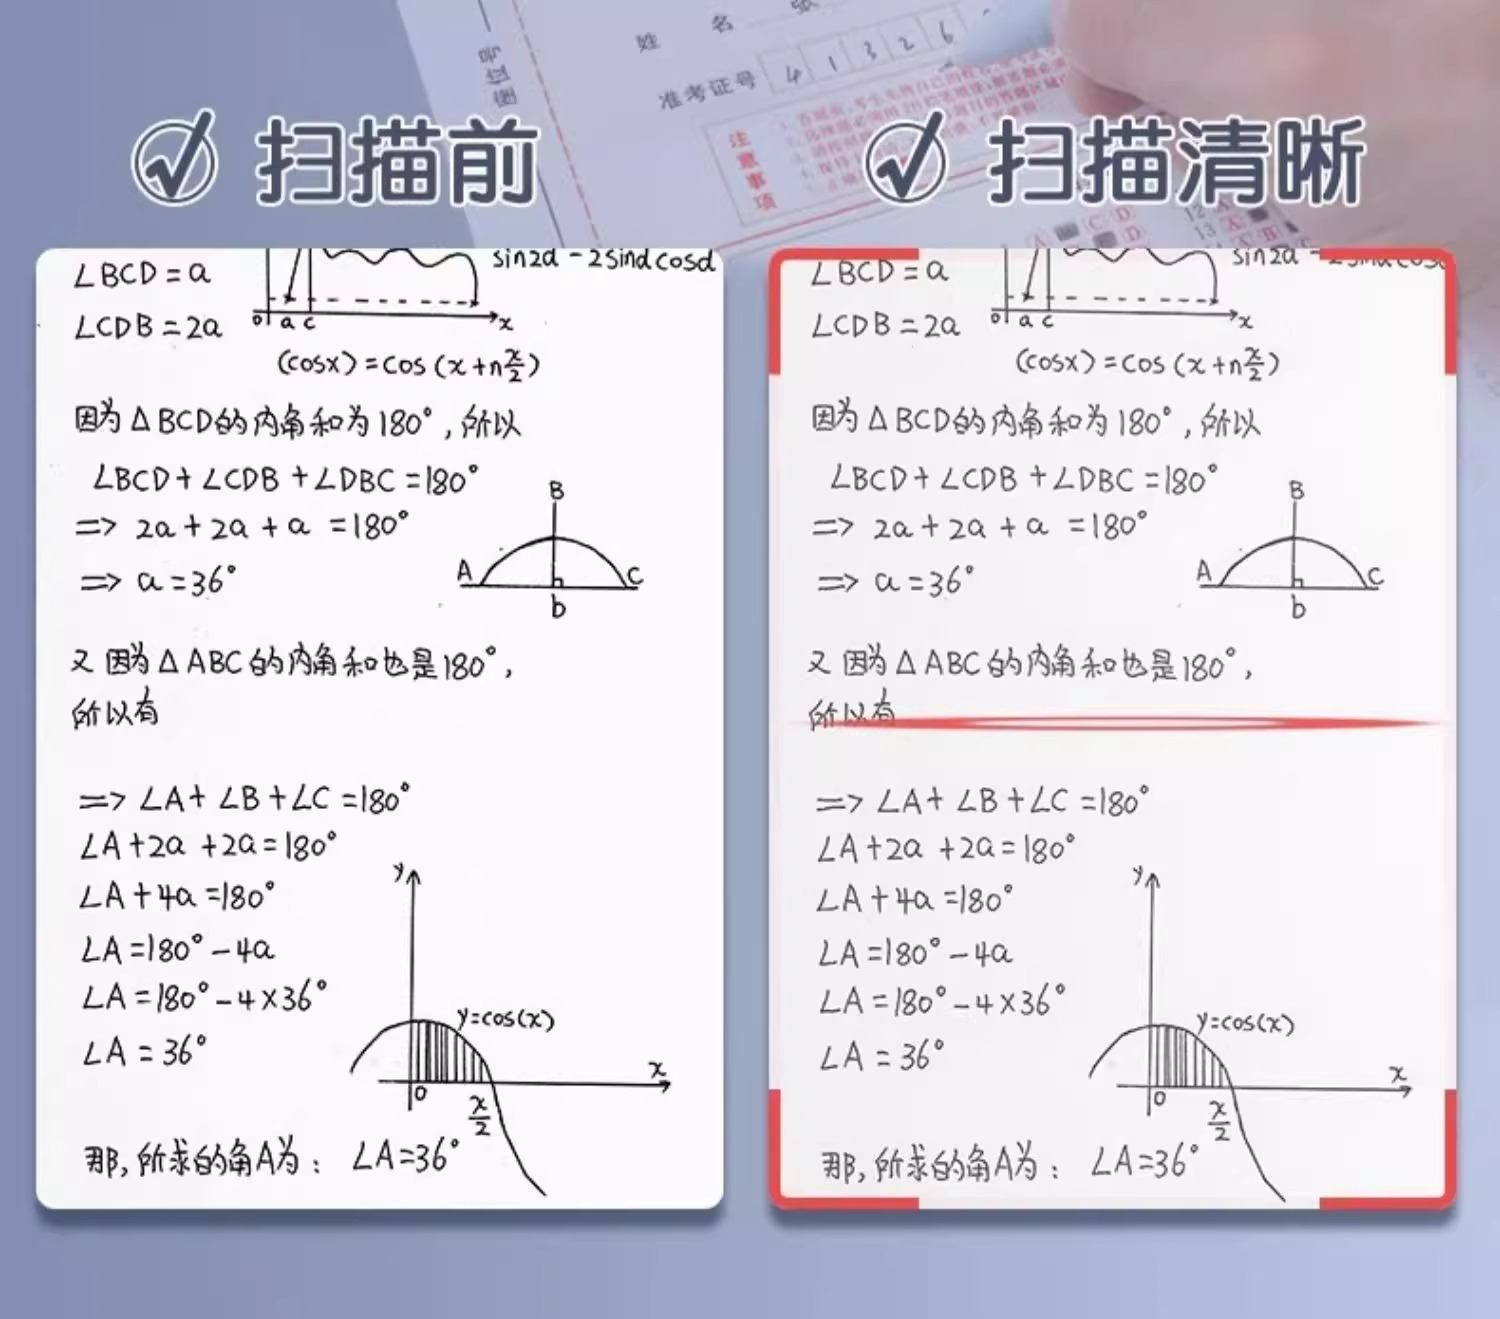 姓 名 张
准考证号 4 1 3 2 6
注意事项
扫描前
扫描清晰
∠BCD=a
sin2α-2sinαcosα
∠CDB=2a
0 a c x
(cosx)=cos(x+n x/2)
因为△BCD的内角和为180°,所以
∠BCD+∠CDB+∠DBC=180°
=> 2a+2a+a=180°
B
=> a=36°
A C
b
又因为△ABC的内角和也是180°,
所以有
=> ∠A+∠B+∠C=180°
∠A+2a+2a=180°
y
∠A+4a=180°
∠A=180°-4a
∠A=180°-4×36°
y=cos(x)
∠A=36°
x
0
x/2
那,所求的角A为: ∠A=36°
∠BCD=a
∠CDB=2a
0 a c x
(cosx)=cos(x+n x/2)
因为△BCD的内角和为180°,所以
∠BCD+∠CDB+∠DBC=180°
=> 2a+2a+a=180°
B
=> a=36°
A C
b
又因为△ABC的内角和也是180°,
所以有
=> ∠A+∠B+∠C=180°
∠A+2a+2a=180°
y
∠A+4a=180°
∠A=180°-4a
∠A=180°-4×36°
y=cos(x)
∠A=36°
x
0
x/2
那,所求的角A为: ∠A=36°